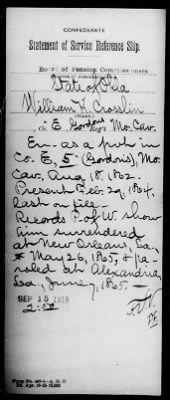 CONFEDERATE
Statement of Service Reference Slip.
Board of Pension Commissioners
State of Okla
William H. Crosslin
(Name.)
Co. E Gordons Reg't Mo. Cav.
En- as a pvt in
Co. E, 5 (Gordon's), Mo.
Cav, Aug 18, 1862-
Present Feb. 29, 1864,
last on file-
Records P. of W. show
him surrendered
at New Orleans, La.,
May 26, 1865, & pa-
roled at Alexandria,
La., June 7, 1865-
SEP 15 1915